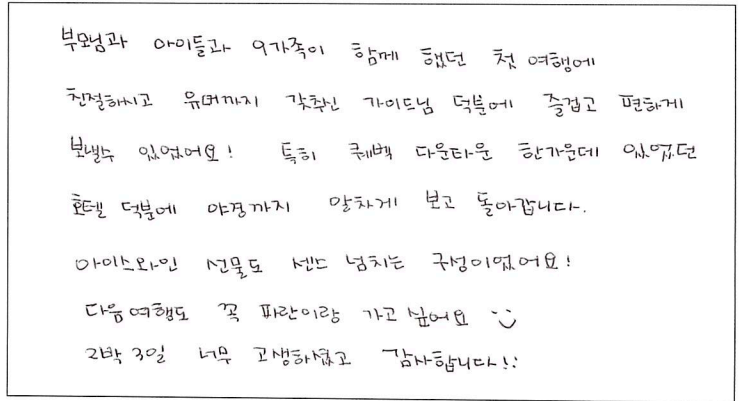 부모님과 아이들과 9가족이 함께 했던 첫 여행에
친절하시고 유머까지 갖추신 가이드님 덕분에 즐겁고 편하게
보낼수 있었어요! 특히 퀘벡 다운타운 한가운데 있었던
호텔 덕분에 야경까지 알차게 보고 돌아갑니다.
아이스와인 선물도 센스 넘치는 구성이었어요!
다음여행도 꼭 파란이랑 가고싶어요 :)
2박 3일 너무 고생하셨고 감사합니다!!